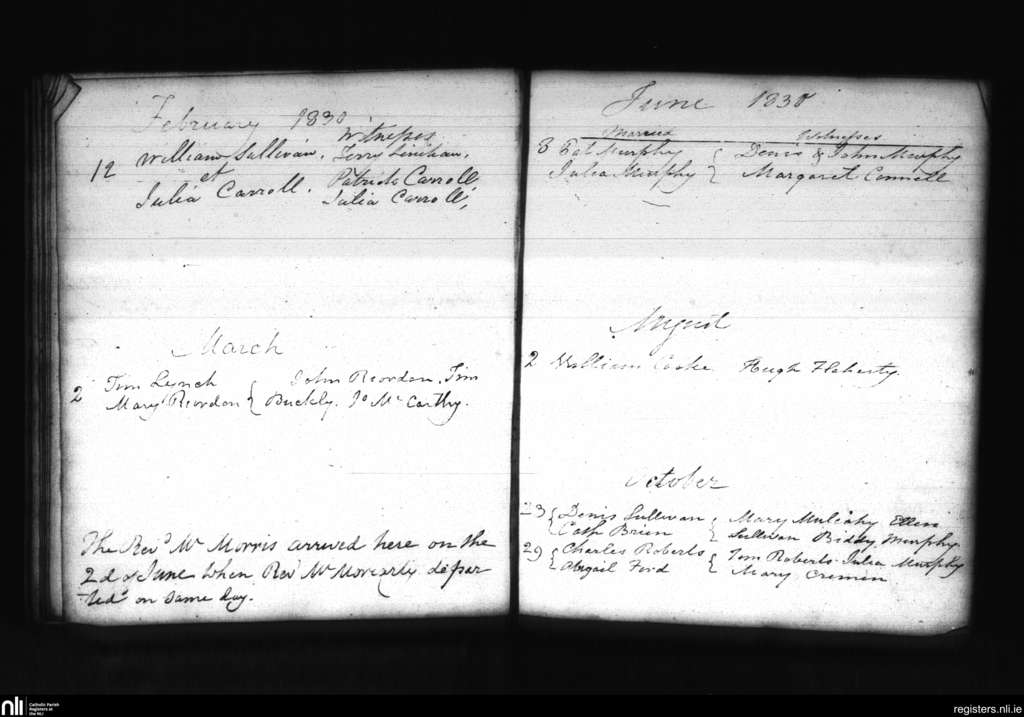 February 1830
Witnesses
12 William Sullivan. Terry Linehan,
et Patrick Carroll
Julia Carroll. Julia Carroll,
March
2 Tim Lynch { John Reordon, Tim
Mary Reordon { Buckly. Jo Mc Carthy.
The Revd Mr Morris arrived here on the
2d of June when Revd Mr Moriarty depar
ted on same day.
June 1830
Married Witnesses
8 Pat Murphy { Denis & John Murphy
Julia Murphy { Margaret Connell
August
2 William Cooke Hugh Flaherty.
October
23 { Denis Sullivan { Mary Mulcahy Ellen
Cath Brien { Sullivan Biddy Murphy
29 { Charles Roberts { Tom Roberts Julia Murphy
Abigail Ford { Mary Cremin
nli Catholic Parish
Registers at
the NLI
registers.nli.ie